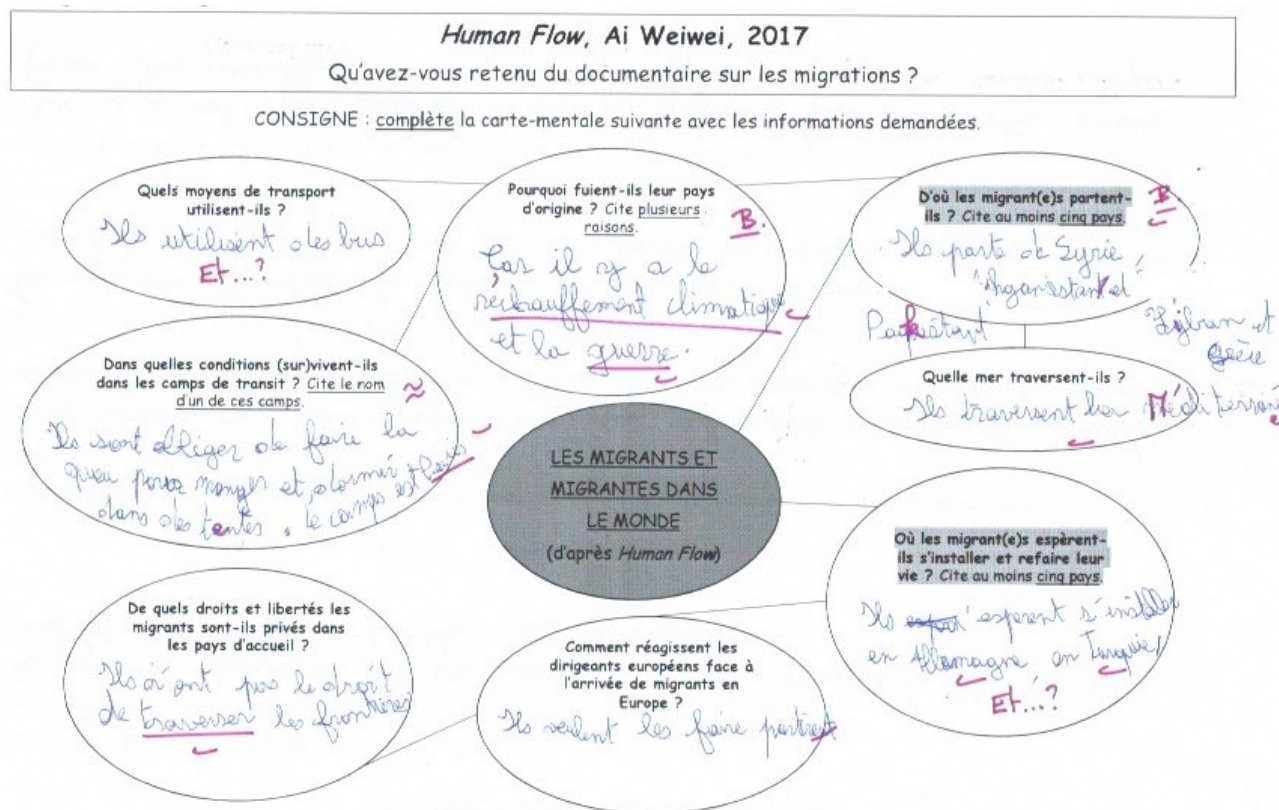 Human Flow, Ai Weiwei, 2017
Qu'avez-vous retenu du documentaire sur les migrations ?
CONSIGNE : complète la carte-mentale suivante avec les informations demandées.
Quels moyens de transport
utilisent-ils ?
Ils utilisent des bus
Et...?
Pourquoi fuient-ils leur pays
d'origine ? Cite plusieurs
raisons.
B.
Car il y a le
réchauffement climatique
et la guerre.
D'où les migrant(e)s partent-
ils ? Cite au moins cinq pays.
B
Ils parte de Syrie,
et
Pakistant
Lybran et
Quelle mer traversent-ils ?
Ils traversent la Méditerrané
Dans quelles conditions (sur)vivent-ils
dans les camps de transit ? Cite le nom
d'un de ces camps.
≈
Ils sont obliger de faire la
queu pour manger et dormir
dans des tentes. le camps est
LES MIGRANTS ET
MIGRANTES DANS
LE MONDE
(d'après Human Flow)
Où les migrant(e)s espèrent-
ils s'installer et refaire leur
vie ? Cite au moins cinq pays.
Ils esperent s'installer
en Allemagne en Turquie,
Et...?
De quels droits et libertés les
migrants sont-ils privés dans
les pays d'accueil ?
Ils n'ont pas le droit
de traverser les frontières
Comment réagissent les
dirigeants européens face à
l'arrivée de migrants en
Europe ?
Ils veulent les faire partirent